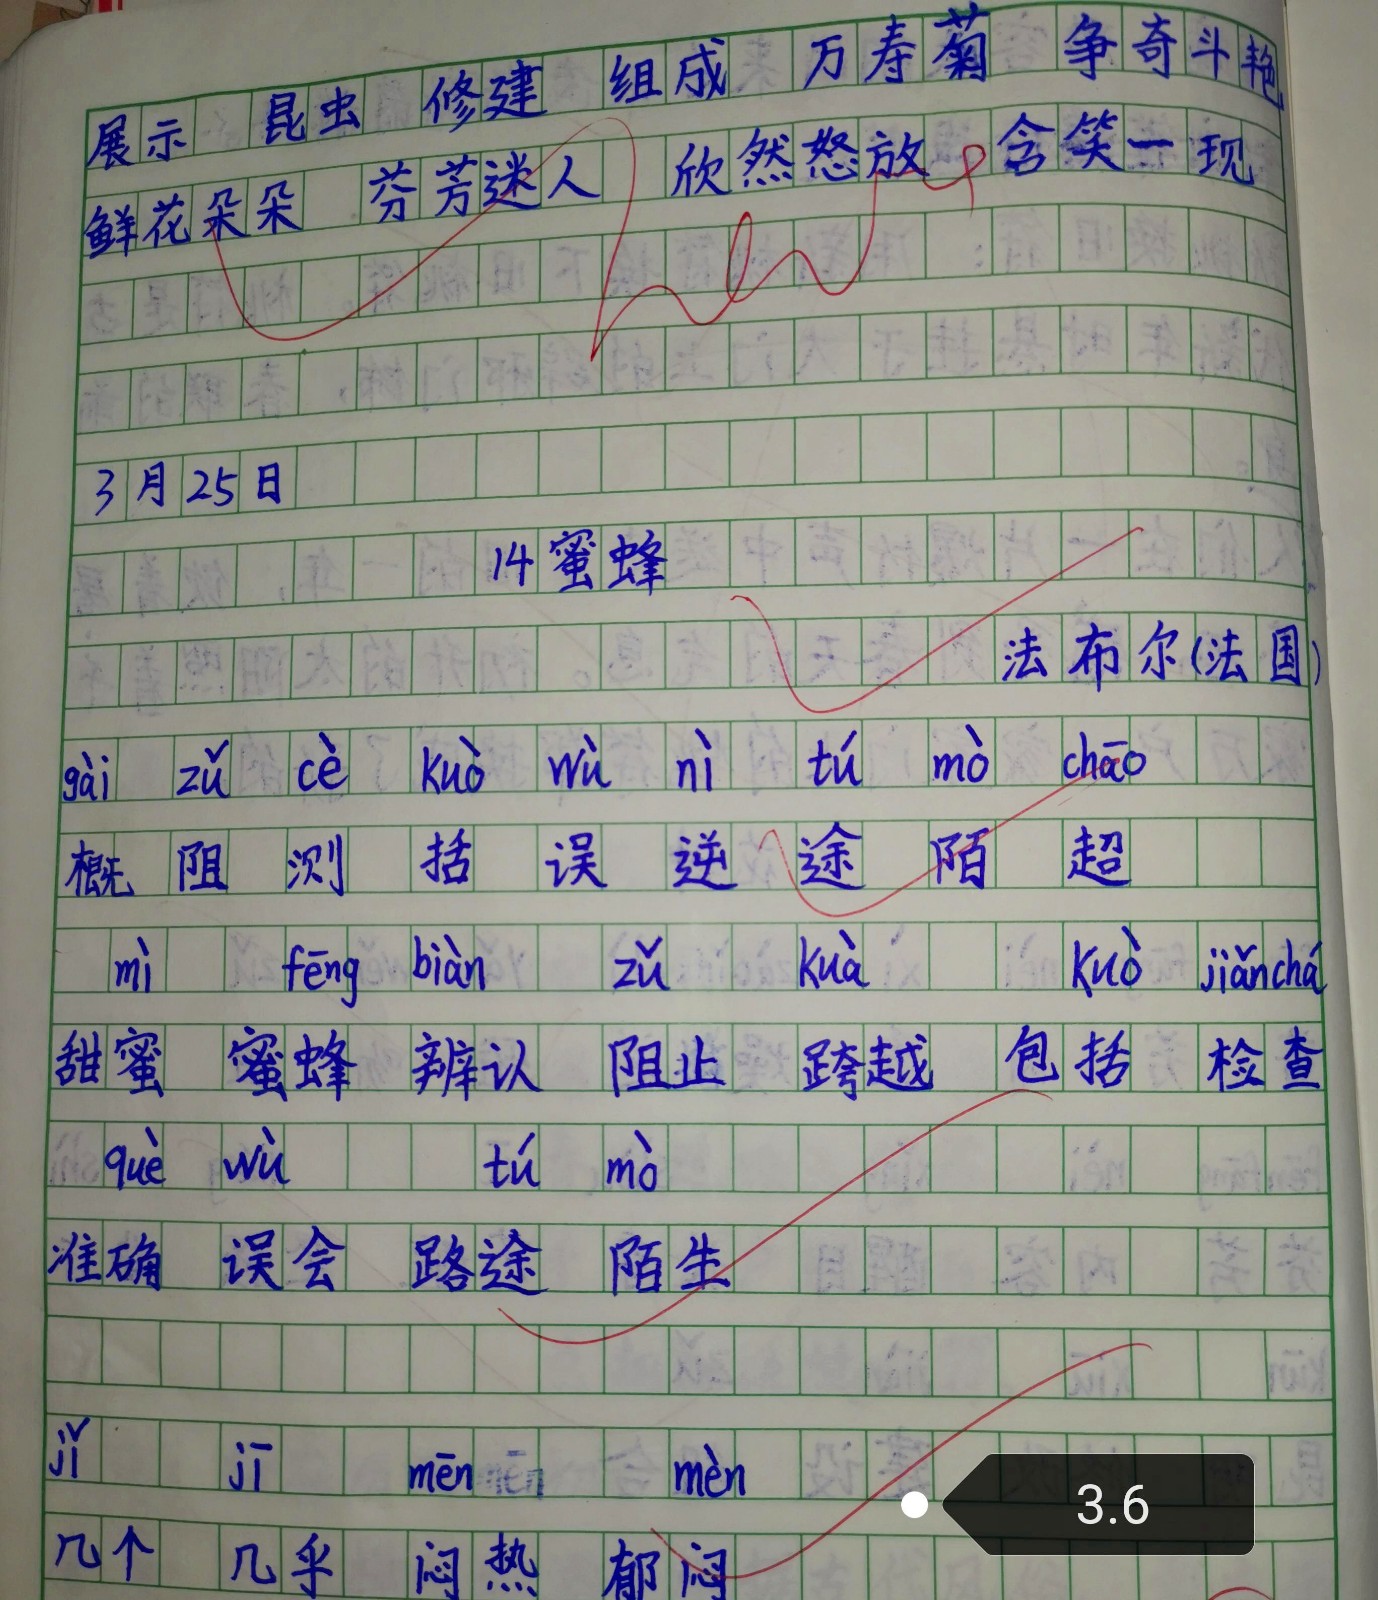 展示 昆虫 修建 组成 万寿菊 争奇斗艳
鲜花朵朵 芬芳迷人 欣然怒放 含笑一现
3月25日
14蜜蜂
法布尔(法国)
gài zǔ cè kuò wù nì tú mò chāo
概 阻 测 括 误 逆 途 陌 超
mì fēng biàn zǔ kuà kuò jiǎnchá
甜蜜 蜜蜂 辨认 阻止 跨越 包括 检查
què wù tú mò
准确 误会 路途 陌生
jǐ jī mēn mèn
几个 几乎 闷热 郁闷
3.6